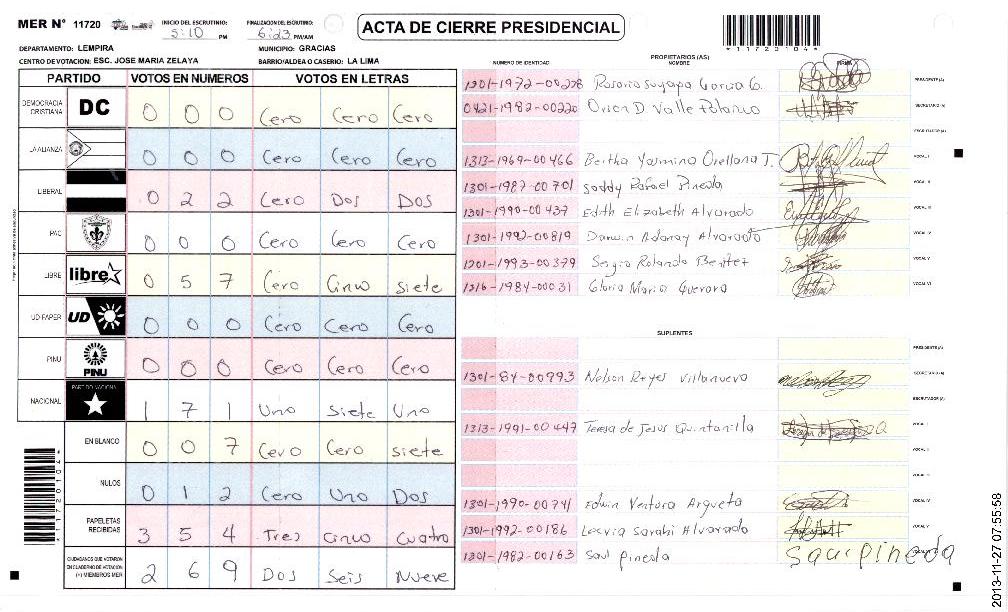 MER N° 11720
INICIO DEL ESCRUTINIO: 5:10 PM
FINALIZACION DEL ESCRUTINIO: 6:23 PM/AM
ACTA DE CIERRE PRESIDENCIAL
*11720104*
DEPARTAMENTO: LEMPIRA
MUNICIPIO: GRACIAS
CENTRO DE VOTACION: ESC. JOSE MARIA ZELAYA
BARRIO/ALDEA O CASERIO: LA LIMA
PARTIDO VOTOS EN NUMEROS VOTOS EN LETRAS
DEMOCRACIA CRISTIANA DC 0 0 0 Cero Cero Cero
LA ALIANZA 0 0 0 Cero Cero Cero
LIBERAL 0 2 2 Cero Dos Dos
PAC 0 0 0 Cero Cero Cero
LIBRE libre 0 5 7 Cero Cinco Siete
UD FAPER UD 0 0 0 Cero Cero Cero
PINU PINU 0 0 0 Cero Cero Cero
NACIONAL PARTIDO NACIONAL 1 7 1 Uno Siete Uno
EN BLANCO 0 0 7 Cero Cero siete
NULOS 0 1 2 Cero Uno Dos
PAPELETAS RECIBIDAS 3 5 4 Tres cinco cuatro
CIUDADANOS QUE VOTARON EN CUADERNO DE VOTACION (+) MIEMBROS MER 2 6 9 Dos Seis Nueve
*11720104*
PROPIETARIOS (AS)
NUMERO DE IDENTIDAD NOMBRE FIRMA
1301-1972-00228 Rosario Suyapa Garcia G. PRESIDENTE (A)
0421-1982-00220 Orion D Valle Polanco SECRETARIO (A)
ESCRUTADOR (A)
1313-1969-00466 Bertha Yasmina Orellana T. VOCAL I
1301-1987-00701 Saddy Rafael Pineda VOCAL II
1301-1990-00437 Edith Elizabeth Alvarado VOCAL III
1301-1992-00819 Darwin Adonay Alvarado VOCAL IV
1201-1993-00379 Sergio Rolando Benitez VOCAL V
1316-1984-00031 Gloria Maria Guevara VOCAL VI
SUPLENTES
PRESIDENTE (A)
1301-84-00993 Nelson Reyes Villanueva SECRETARIO (A)
ESCRUTADOR (A)
1313-1991-00447 Teresa de Jesus Quintanilla VOCAL I
VOCAL II
VOCAL III
1301-1990-00741 Edwin Ventura Argueta VOCAL IV
1301-1992-00186 Lesvia Sarahi Alvarado VOCAL V
1301-1982-00163 Saul pineda saul pineda
2013-11-27 07:55:58